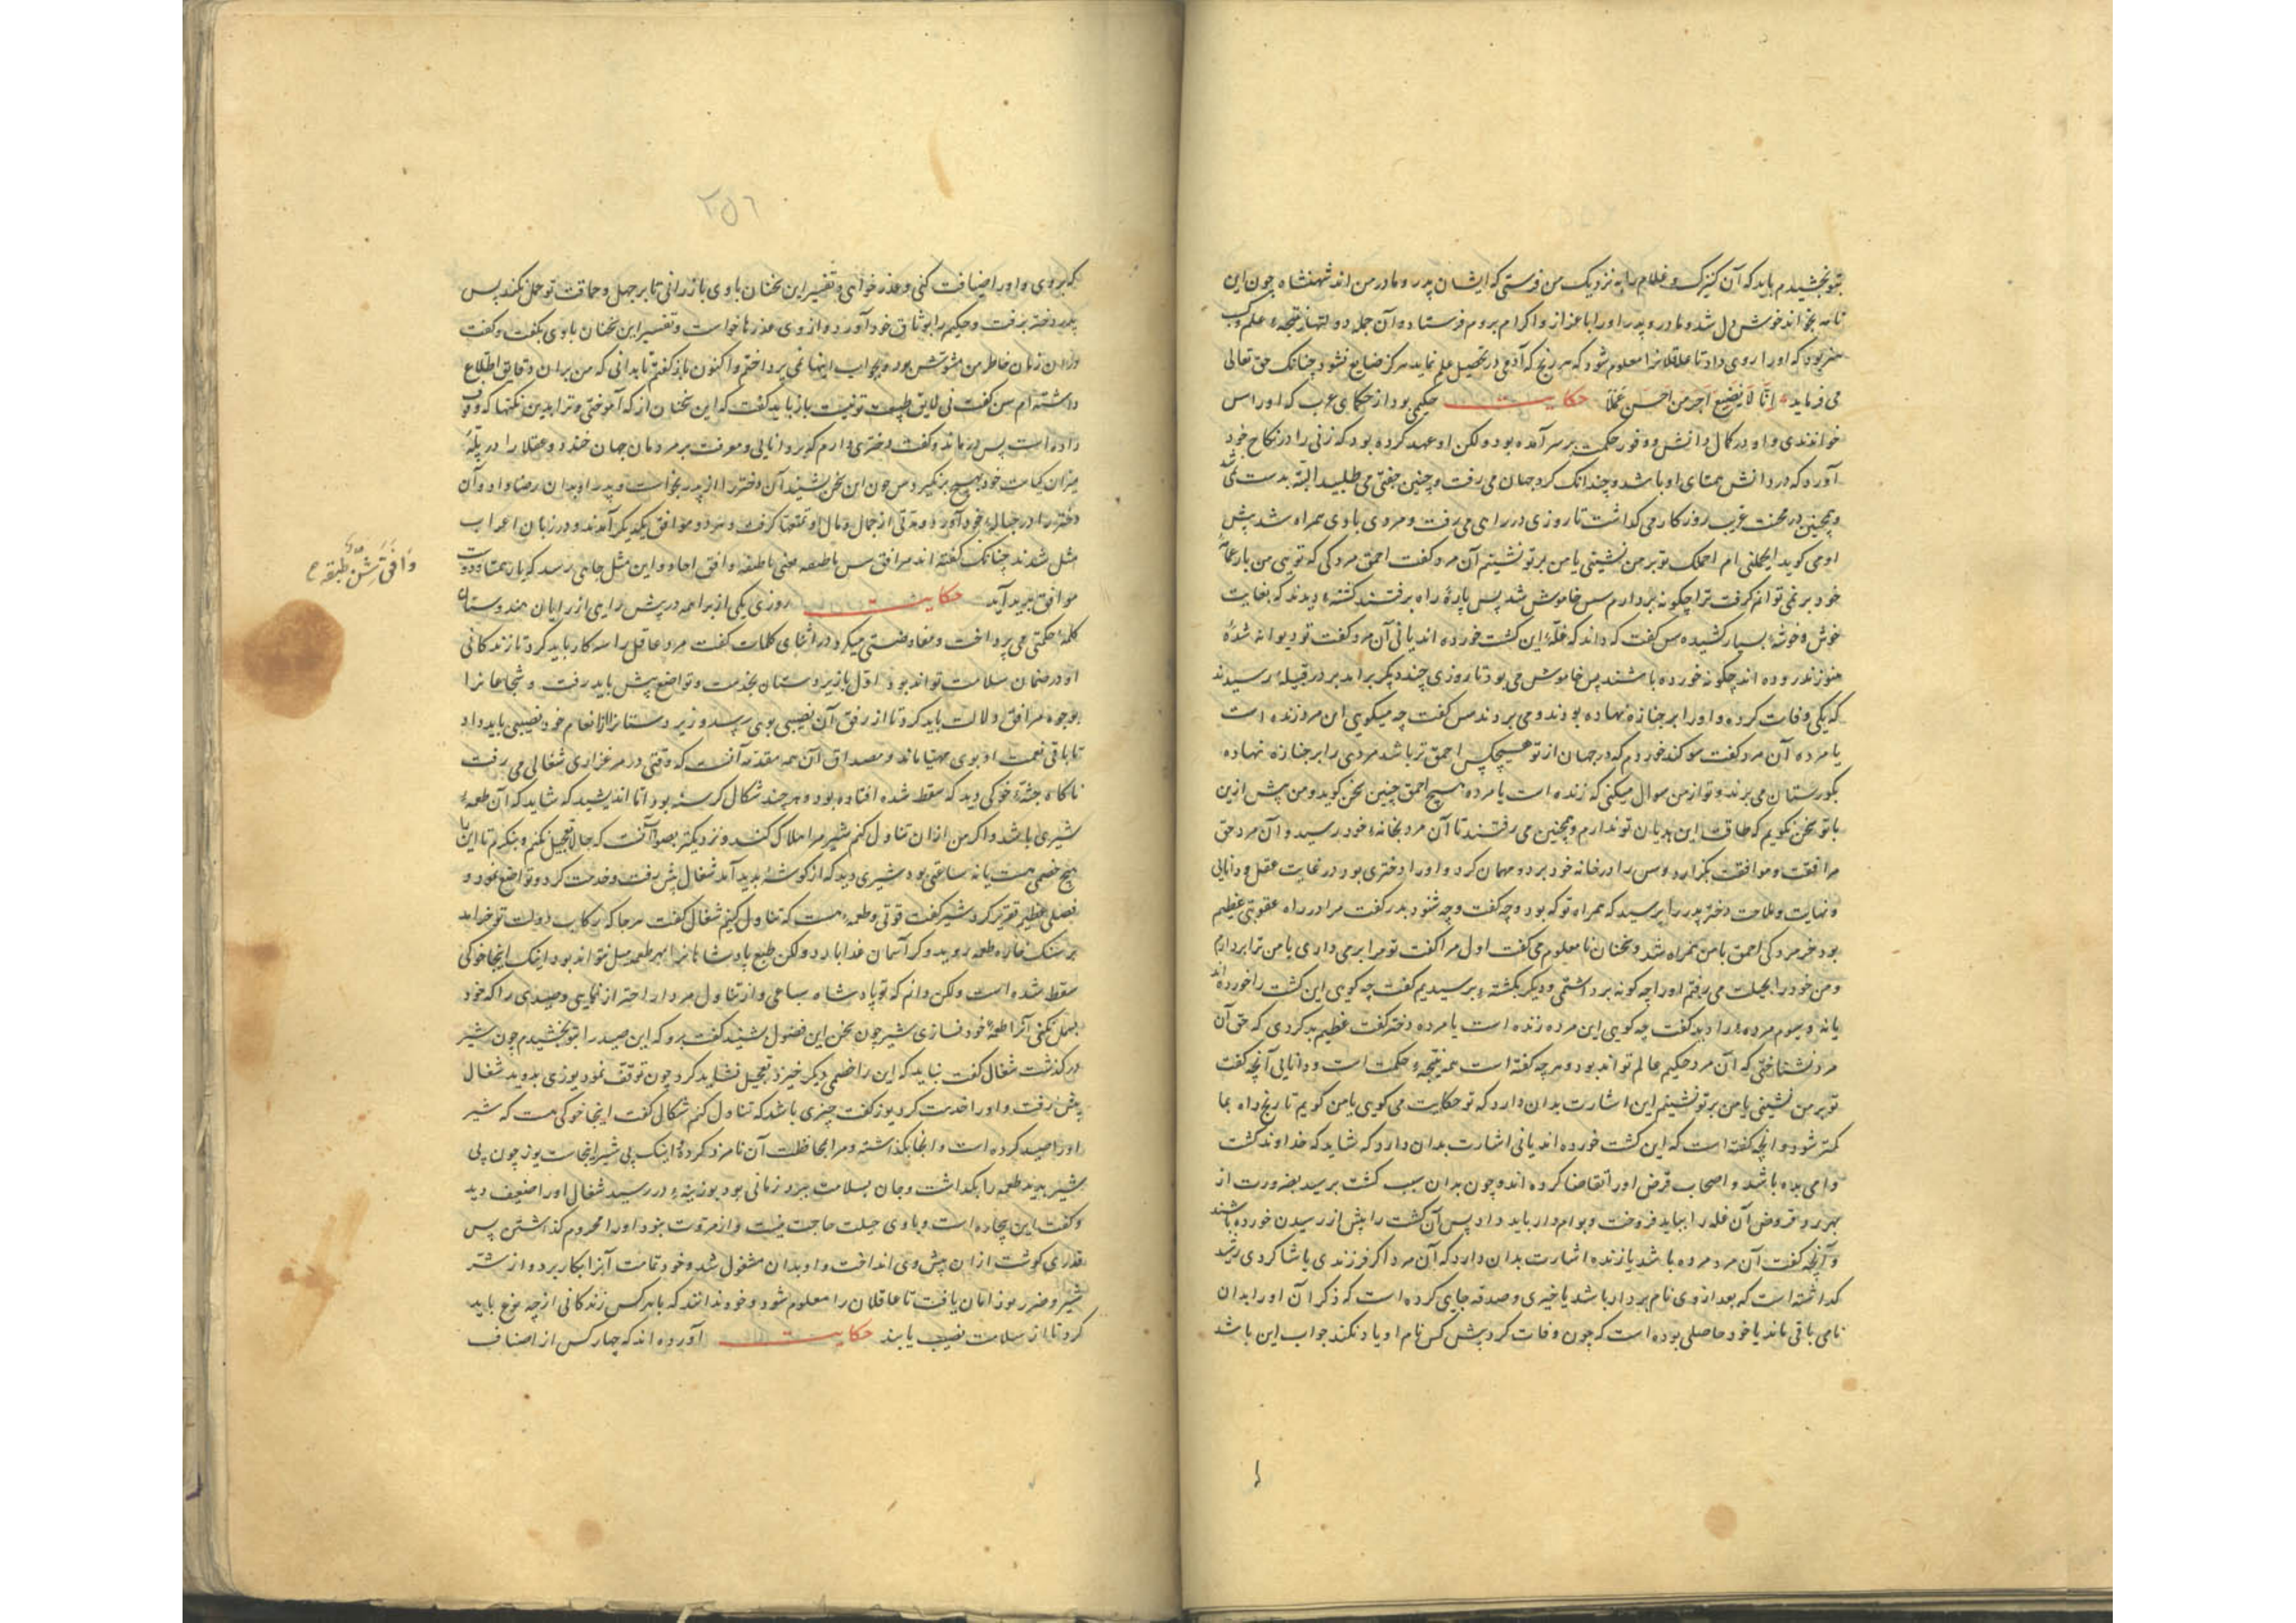 بتو بخشیدم باید که آن کنیزک و غلام را به نزدیک من فرستی که ایشان پدر و مادر من اند شهنشاه چون این
نامه بخواند خوش دل شد و مادر و پدر او را با عزاز و اکرام بروم فرستاد و آن جمله دولتها نتیجهٔ علم و کسب
هنر بود که او را روی داد تا عاقلانرا معلوم شود که هر رنج که آدمی در تحصیل علم نماید هرگز ضایع نشود چنانک حق تعالی
می فرماید انا لا نضیع اجر من احسن عملا حکایت حکیمی بود از حکمای عرب که او را سن
خواندندی و او در کمال دانش و وفور حکمت بر سر آمده بود ولکن او عهد کرده بود که زنی را در نکاح خود
آورد که در دانش همتای او باشد و چندانک گرد جهان می رفت و چنین جفتی می طلبید البته بدست نمی شد
و همچنین در محنت غربت روزگار می گذاشت تا روزی در راهی می رفت و مردی با وی همراه شد پس
او می گوید ایحملنی ام احملک تو بر من نشینی یا من بر تو نشینم آن مرد گفت احمق مردکی که تویی من بار جامهٔ
خود بر نمی توانم گرفت ترا چگونه بردارم سن خاموش شد پس پارهٔ راه برفتند کشتهٔ دیدند که بغایت
خوش و خوشهٔ بسیار کشیده سن گفت که داند که غلهٔ این کشت خورده اند یا نی آن مرد گفت تو دیوانه شدهٔ
هنوز ندروده اند چگونه خورده باشند سن خاموش می بود تا روزی چند دیگر براید بر در قبیلهٔ رسیدند
که یکی وفات کرده و او را بر جنازه نهاده بودند و می بردند سن گفت چه میگویی این مرد زنده است
یا مرده آن مرد گفت سوگند خوردم که در جهان از تو هیچکس احمق تر باشد مردی را بر جنازه نهاده
بگورستان می برند و تو از من سوال میکنی که زنده است یا مرده هیچ احمق چنین سخن گوید و من پیش ازین
با تو سخن نگویم که طاقت این هذیان تو ندارم و همچنین می رفتند تا آن مرد بخانهٔ خود رسید و آن مرد حق
مرافقت و موافقت بگزارد و سن را در خانه خود برد و مهمان کرد و او را دختری بود در غایت عقل و دانایی
و نهایت و ملاحت دختر پدر را پرسید که همراه تو که بود و چه گفت و چه شنود پدر گفت مرا در راه عقوبتی عظیم
بود خر مردکی احمق با من همراه شد و سخنان نامعلوم می گفت اول مرا گفت تو مرا بر می داری یا من ترا بردارم
و من خود را بحیلت می رفتم او را چه گونه برداشتمی و دیگر بکشتهٔ برسیدیم گفت چه گویی این کشت را خورده اند
یا نه و سوم مرده را دید گفت چه گویی این مرده زنده است یا مرده دختر گفت عظیم بد کردی که حق آن
مرد نشناختی که آن مرد حکیم عالم تواند بود و هرچه گفته است همه نتیجهٔ حکمت است و دانایی آنچه گفت
تو بر من نشینی یا من بر تو نشینم این اشارت بدان دارد که تو حکایت می گویی یا من گویم تا رنج راه بما
کمتر شود و آنچه گفته است که این کشت خورده اند یا نی اشارت بدان دارد که شاید که خداوند کشت
وامی بداده باشد و اصحاب قرض او را تقاضا کرده اند و چون بدان سبب کشت برسید بضرورت از
بهر و قروض آن غله را بباید فروخت و بوام دار باید داد پس آن کشت را پیش از رسیدن خورده باشند
و آنچه گفت آن مرد مرده باشد یا زنده اشارت بدان دارد که آن مرد اگر فرزندی یا شاگردی رشید
گذاشته است که بعد از وی نام بردار باشد یا خیری و صدقه جایی کرده است که ذکر آن او را بدان
نامی باقی ماند یا خود حاصلی بوده است که چون وفات کرد پیش کس نام او یاد نکند جواب این باشد
۲۵۶
که بروی و او را ضیافت کنی و عذر خواهی و تفسیر این سخنان با وی باز رانی تا بر جهل و حماقت تو حمل نکند پس
پدر دختر برفت و حکیم را بوثاق خود آورد و از وی عذرها خواست و تفسیر این سخنان با وی بگفت و گفت
در آن زمان خاطر من مشوش بود و بجواب اینها نمی پرداختم و اکنون باز گفتم تا بدانی که من بر آن دقایق اطلاع
داشته ام سن گفت نی لایق طبیعت تو نیست باز باید گفت که این سخنان از که آموختی و ترا بدین نکتها که وقوف
داده است پس در ماند و گفت دختری دارم که بر دانایی و معرفت بر مردمان جهان خندد و عقلا را در پلهٔ
میزان کیاست خود بهیچ برنگیرد سن چون این سخن بشنید آن دختر را از پدر بخواست و پدر او بدان رضا داد و آن
دختر را در حبالهٔ خود آورد و مدتی از جمال و مال او تمتعها گرفت و هر دو موافق یکدیگر آمدند و در زبان اعراب
مثل شدند چنانک گفته اند وافق سن باطبقه یعنی باطبقه وافق افتاد و این مثل جایی رسد که یار همتا بدست
موافق پدید آید حکایت روزی یکی از براهمه در پیش رایی از رایان هندوستان
کلمهٔ حکمتی می پرداخت و مفاوضتی میکرد در اثنای کلمات گفت مرد عاقل را سه کار باید کرد تا زندگانی
او در ضمان سلامت تواند بود اول با زیردستان بخدمت و تواضع پیش باید رفت و شجاعانرا
بوجوه مرافق دلالت باید کرد تا از رفق آن نصیبی بوی رسد و زیردستانرا از انعام خود نصیبی باید داد
تا باقی نعمت او بوی مهنا ماند و مصداق آن همه مقدمه آنست که وقتی در مرغزاری شغالی می رفت
ناگاه جثهٔ خوکی دید که سقط شده افتاده بود و هر چند شگال گرسنه بود اما اندیشید که شاید که آن طعمهٔ
شیری باشد و اگر من از آن تناول کنم شیر مرا هلاک کند و نزدیکتر بصواب آنست که حالا تعجیل نکنم و بنگرم تا این را
هیچ خصمی هست یا نه ساعتی بود شیری دید که از گوشهٔ پدید آمد شغال پیش رفت و خدمت کرد و تواضع نمود و
فصلی عظیم تقریر کرد شیر گفت قوتی و طعمهٔ هست که تناول کنیم شغال گفت هر جا که رکاب دولت تو خرامد
بر سنگ خاره طعمه روید و گر آسمان غذا بارد ولکن طبع پادشاهانرا بهر طعمه میل نتواند بود اینک اینجا خوکی
سقط شده است ولکن دانم که تو پادشاه سباعی و از تناول مردار احتراز نمایی و صیدی را که خود
بسمل نکنی آنرا طعمهٔ خود نسازی شیر چون سخن این فضول بشنید گفت برو که این صید را بتو بخشیدم چون شیر
در گذشت شغال گفت نباید که این را خصمی دیگر خیزد تعجیل نشاید کرد چون توقف نمود یوزی بدوید شغال
پیش رفت و او را خدمت کرد یوز گفت چیزی باشد که تناول کنم شگال گفت اینجا خوکی هست که شیر
او را صید کرده است و اینجا بگذاشته و مرا بمحافظت آن نامزد کرده اینک پی شیر اینجاست یوز چون پی
شیر بدید طعمه را بگذاشت و جان بسلامت ببرد زمانی بود بوزینهٔ در رسید شغال او را ضعیف دید
و گفت این بیچاره است و با وی حیلت حاجت نیست و از مروت نبود او را محروم گذاشتن پس
قدری گوشت از آن پیش وی انداخت و او بدان مشغول شد و خود تمامت آنرا بکار برد و از شر
شیر و ضرر یوز امان یافت تا عاقلان را معلوم شود و خردمندانند که با هر کس زندگانی از چه نوع باید
کرد تا از سلامت نصیب یابند حکایت آورده اند که چهار کس از اصناف
وافق شن طبقه ح